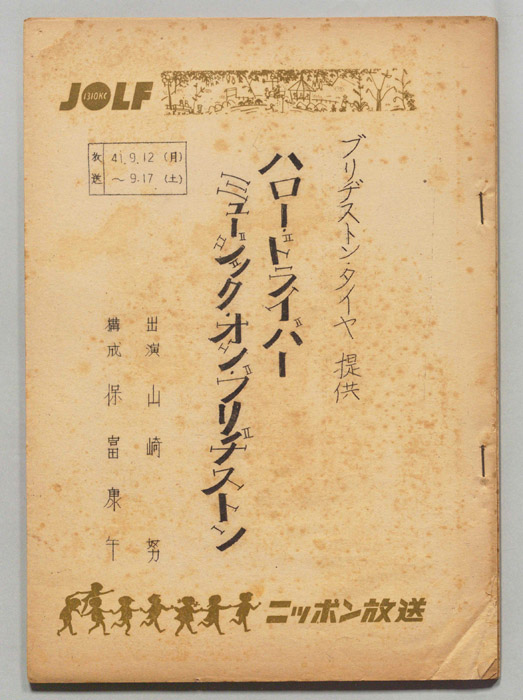 JOLF
1310KC
ブリヂストン・タイヤ 提供
ハロー・ドライバー
ミュージック・オン・ブリヂストン
放送 41.9.12（月）
～9.17（土）
出演 山崎努
構成 保富康午
ニッポン放送